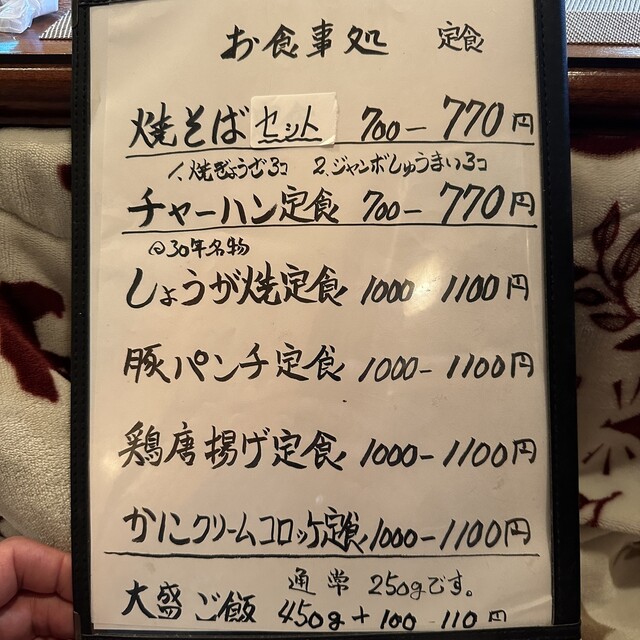 お食事処 定食
焼そばセット 700-770円
1.焼ぎょうざ3コ 2.ジャンボしゅうまい3コ
チャーハン定食 700-770円
30年名物
しょうが焼定食 1000-1100円
豚パンチ定食 1000-1100円
鶏唐揚げ定食 1000-1100円
かにクリームコロッケ定食 1000-1100円
通常 250gです。
大盛ご飯 450g+100-110円